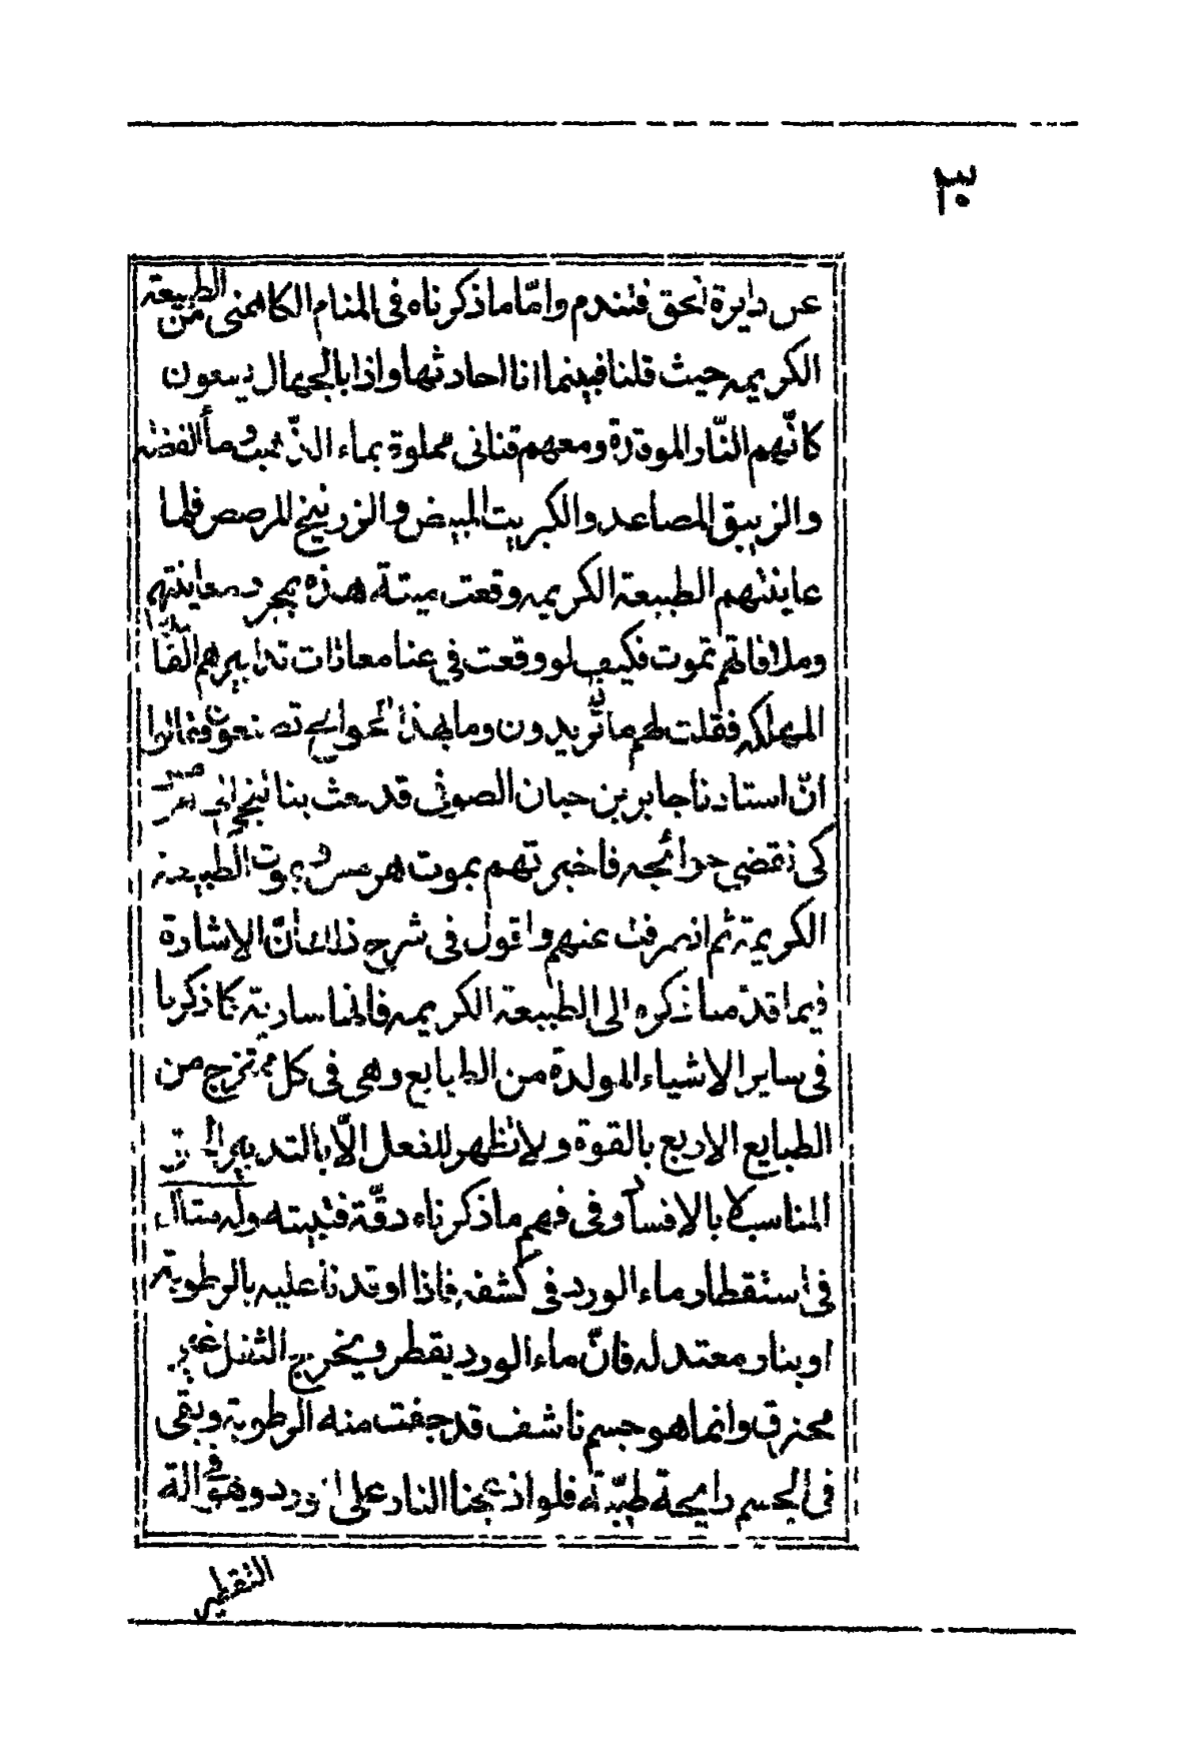 ٣٠
عن دايرة الحق فتندم وامّا ما ذكرناه فى المنام الكاهنى من الطبيعة
الكريمه حيث قلنا فبينما انا احادثها واذا بالجهال يسعون
كانّهم النّار الموقدة ومعهم قنانى مملوة بماء الذّهب وماء الفضه
والزيبق المصاعد والكبريت المبيض والزرنيخ المرصص فلما
عاينتهم الطبيعة الكريمه وقعت ميتة هذه بمجرد معاينتهم
وملاقاتهم تموت فكيف لو وقعت فى عنا معاذات تدابيرهم
المهلكه فقلت لهم ما تريدون وما بهذا الحوايج تصنعون فقالوا
انّ استادنا جابر بن حيان الصوفى قد بعث بنا
كى نقضى حوائجه فاخبرتهم بموت هرمس وبموت الطبيعة
الكريمة ثم انصرفت عنهم واقول فى شرح ذلك انّ الاشارة
فيما قدّمنا ذكره الى الطبيعة الكريمه فانها سارية كما ذكرنا
فى ساير الاشياء المولدة من الطبايع وهى فى كل ممتزج من
الطبايع الاربع بالقوة ولا تظهر للفعل الّا بالتدبير
المناسب لا بالافساد وفى فهم ما ذكرناه دقّة فثبته وله مثال
فى استقطار ماء الورد فى كشفه فاذا اوقدنا عليه بالرطوبة
او بنار معتدله فانّ ماء الورد يقطر ويخرج الثفل غير
محترق وانما هو جسم ناشف قد جفت منه الرطوبة وبقى
فى الجسم رايحة طيّبة فلو ازعجنا النار على الورد وهو فى الة
التقطير